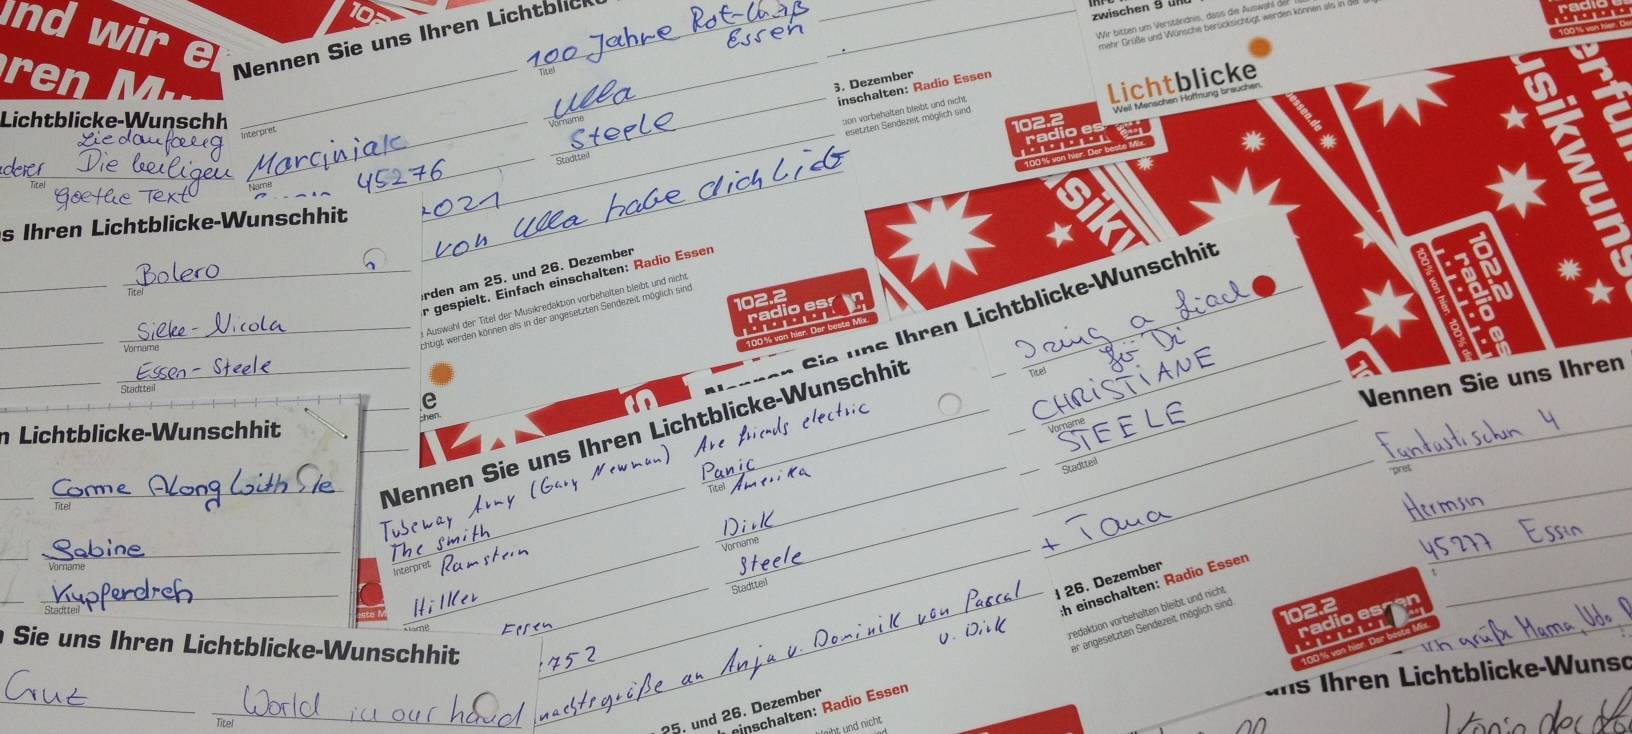 nd wir e
ren Mu
102
Nennen Sie uns Ihren Lichtblicke
100 Jahre Rot-Weiß
Essen
Titel
Interpret
Ulla
Vorname
Marciniak
Name
Steele
Stadtteil
45276
2021
von Ulla habe dich lieb
rden am 25. und 26. Dezember
r gespielt. Einfach einschalten: Radio Essen
Auswahl der Titel der Musikredaktion vorbehalten bleibt und nicht
chtigt werden können als in der angesetzten Sendezeit möglich sind.
102.2
radio essen
100% von hier. Der beste Mix.
e
chen.
6. Dezember
inschalten: Radio Essen
ion vorbehalten bleibt und nicht
esetzten Sendezeit möglich sind.
102.2
radio es
100% von hier. Der beste Mix.
zwischen 9 und
Wir bitten um Verständnis, dass die Auswahl der
mehr Grüße und Wünsche berücksichtigt werden können als in de
Lichtblicke
Weil Menschen Hoffnung brauchen.
radio es
100% von hier. De
essen.de
usikwuns
erfü
102.2
radio es
100% von hier. 100% di
usikw
Lichtblicke-Wunschh
Liedanfang
derer Die heiligen
Titel
Goethe Text
s Ihren Lichtblicke-Wunschhit
Bolero
Titel
Silke-Nicola
Vorname
Essen-Steele
Stadtteil
n Lichtblicke-Wunschhit
Come Along With Me
Titel
Sabine
Vorname
Kupferdreh
Stadtteil
este M
Sie uns Ihren Lichtblicke-Wunschhit
Cruz
World in our hand
Titel
Nennen Sie uns Ihren Lichtblicke-Wunschhit
Tubeway Army (Gary Newman) Are friends electric
The smith
Panic
Titel Amerika
Interpret Ramstein
Dirk
Vorname
Hilker
Name
Steele
Stadtteil
Essen
752
nachtsgrüße an Anja u. Dominik von Pascal
u. Dirk
25. und 26. Dezember
einschalten: Radio Essen
bleibt und nicht
Nennen Sie uns Ihren Lichtblicke-Wunschhit
I sing a Liad
für Di
Titel
CHRISTIANE
Vorname
STEELE
Stadtteil
+ Tana
26. Dezember
h einschalten: Radio Essen
redaktion vorbehalten bleibt und nicht
er angesetzten Sendezeit möglich sind.
102.2
radio essen
100% von hier. Der beste Mix.
Nennen Sie uns Ihren
Fantastischen 4
pret
Hermsen
45277 Essen
Ich grüße Mama, Udo,
uns Ihren Lichtblicke-Wunsc